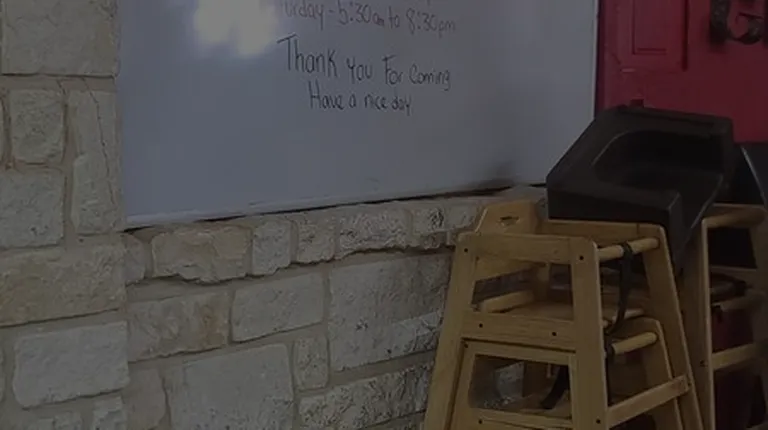 urday - 5:30am to 8:30pm
Thank you For Coming
Have a nice day